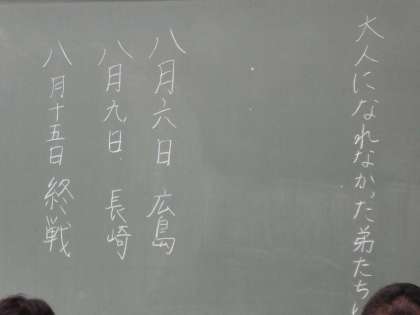 大人になれなかった弟たちに
八月六日 広島
八月九日 長崎
八月十五日 終戦